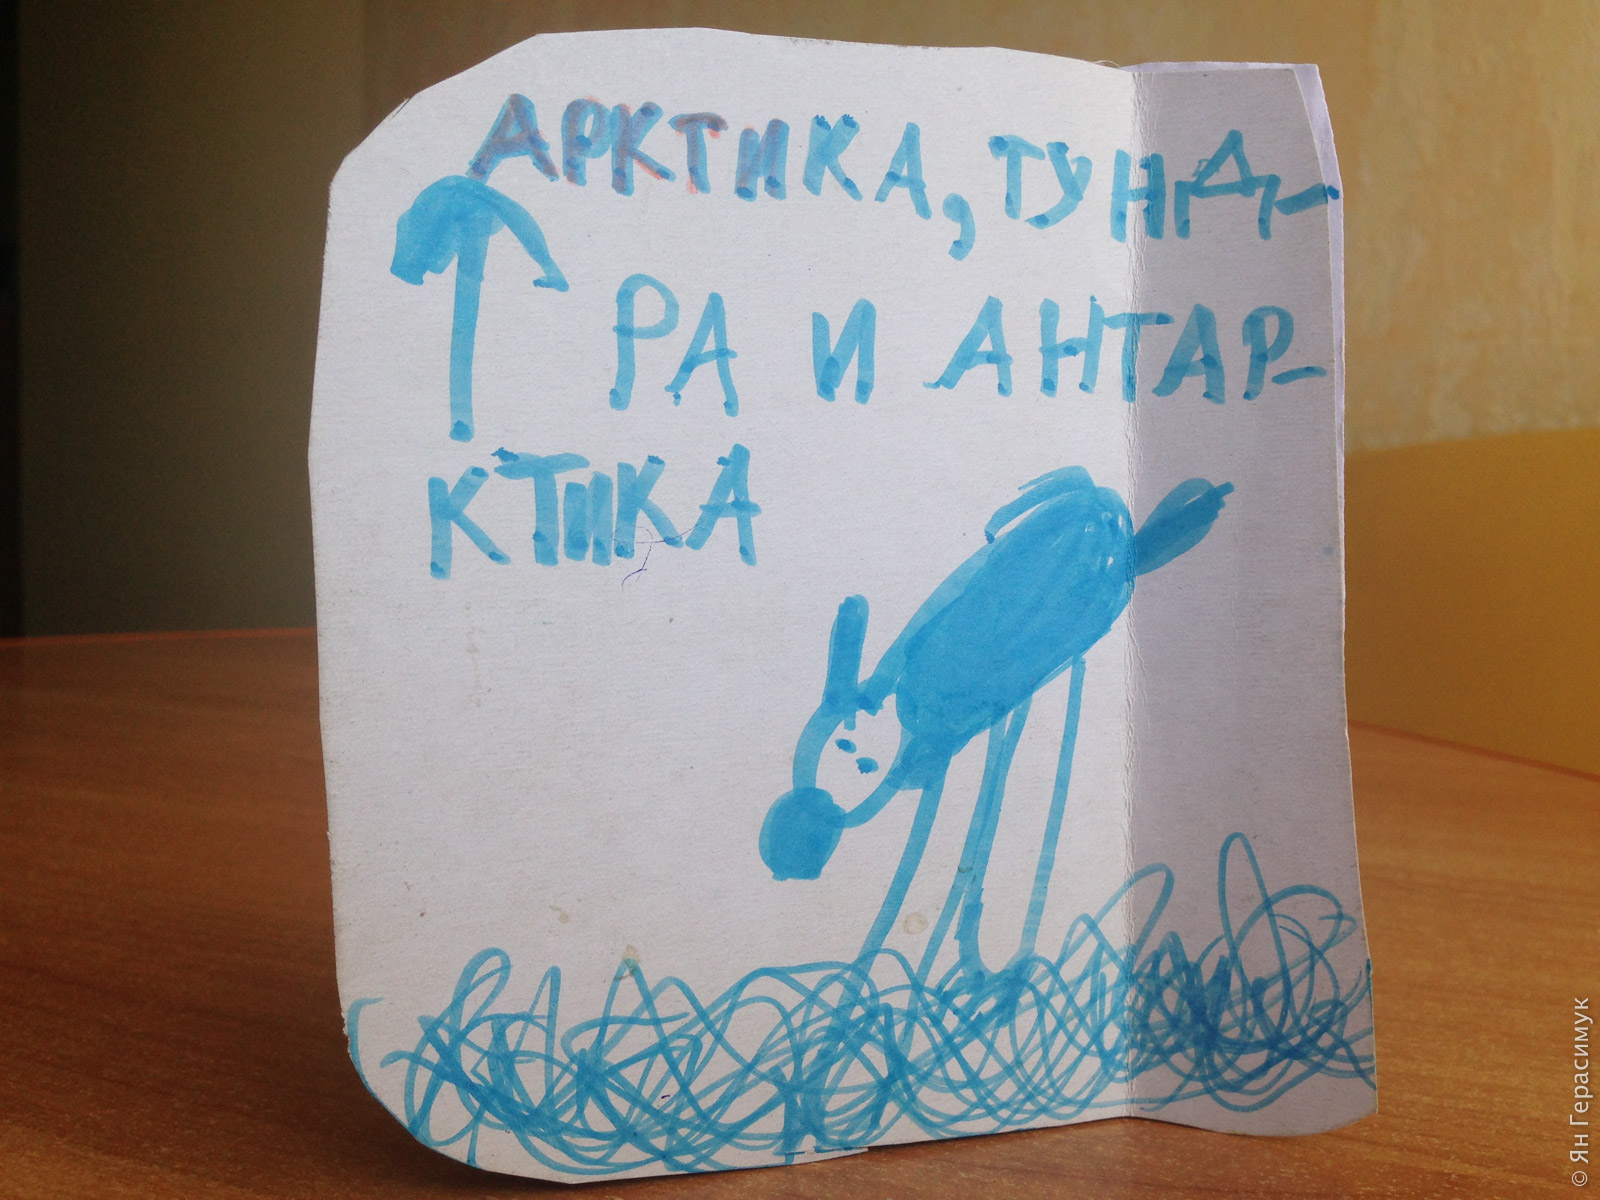 АРКТИКА, ТУНД-
РА И АНТАР-
КТИКА
© Ян Герасимук